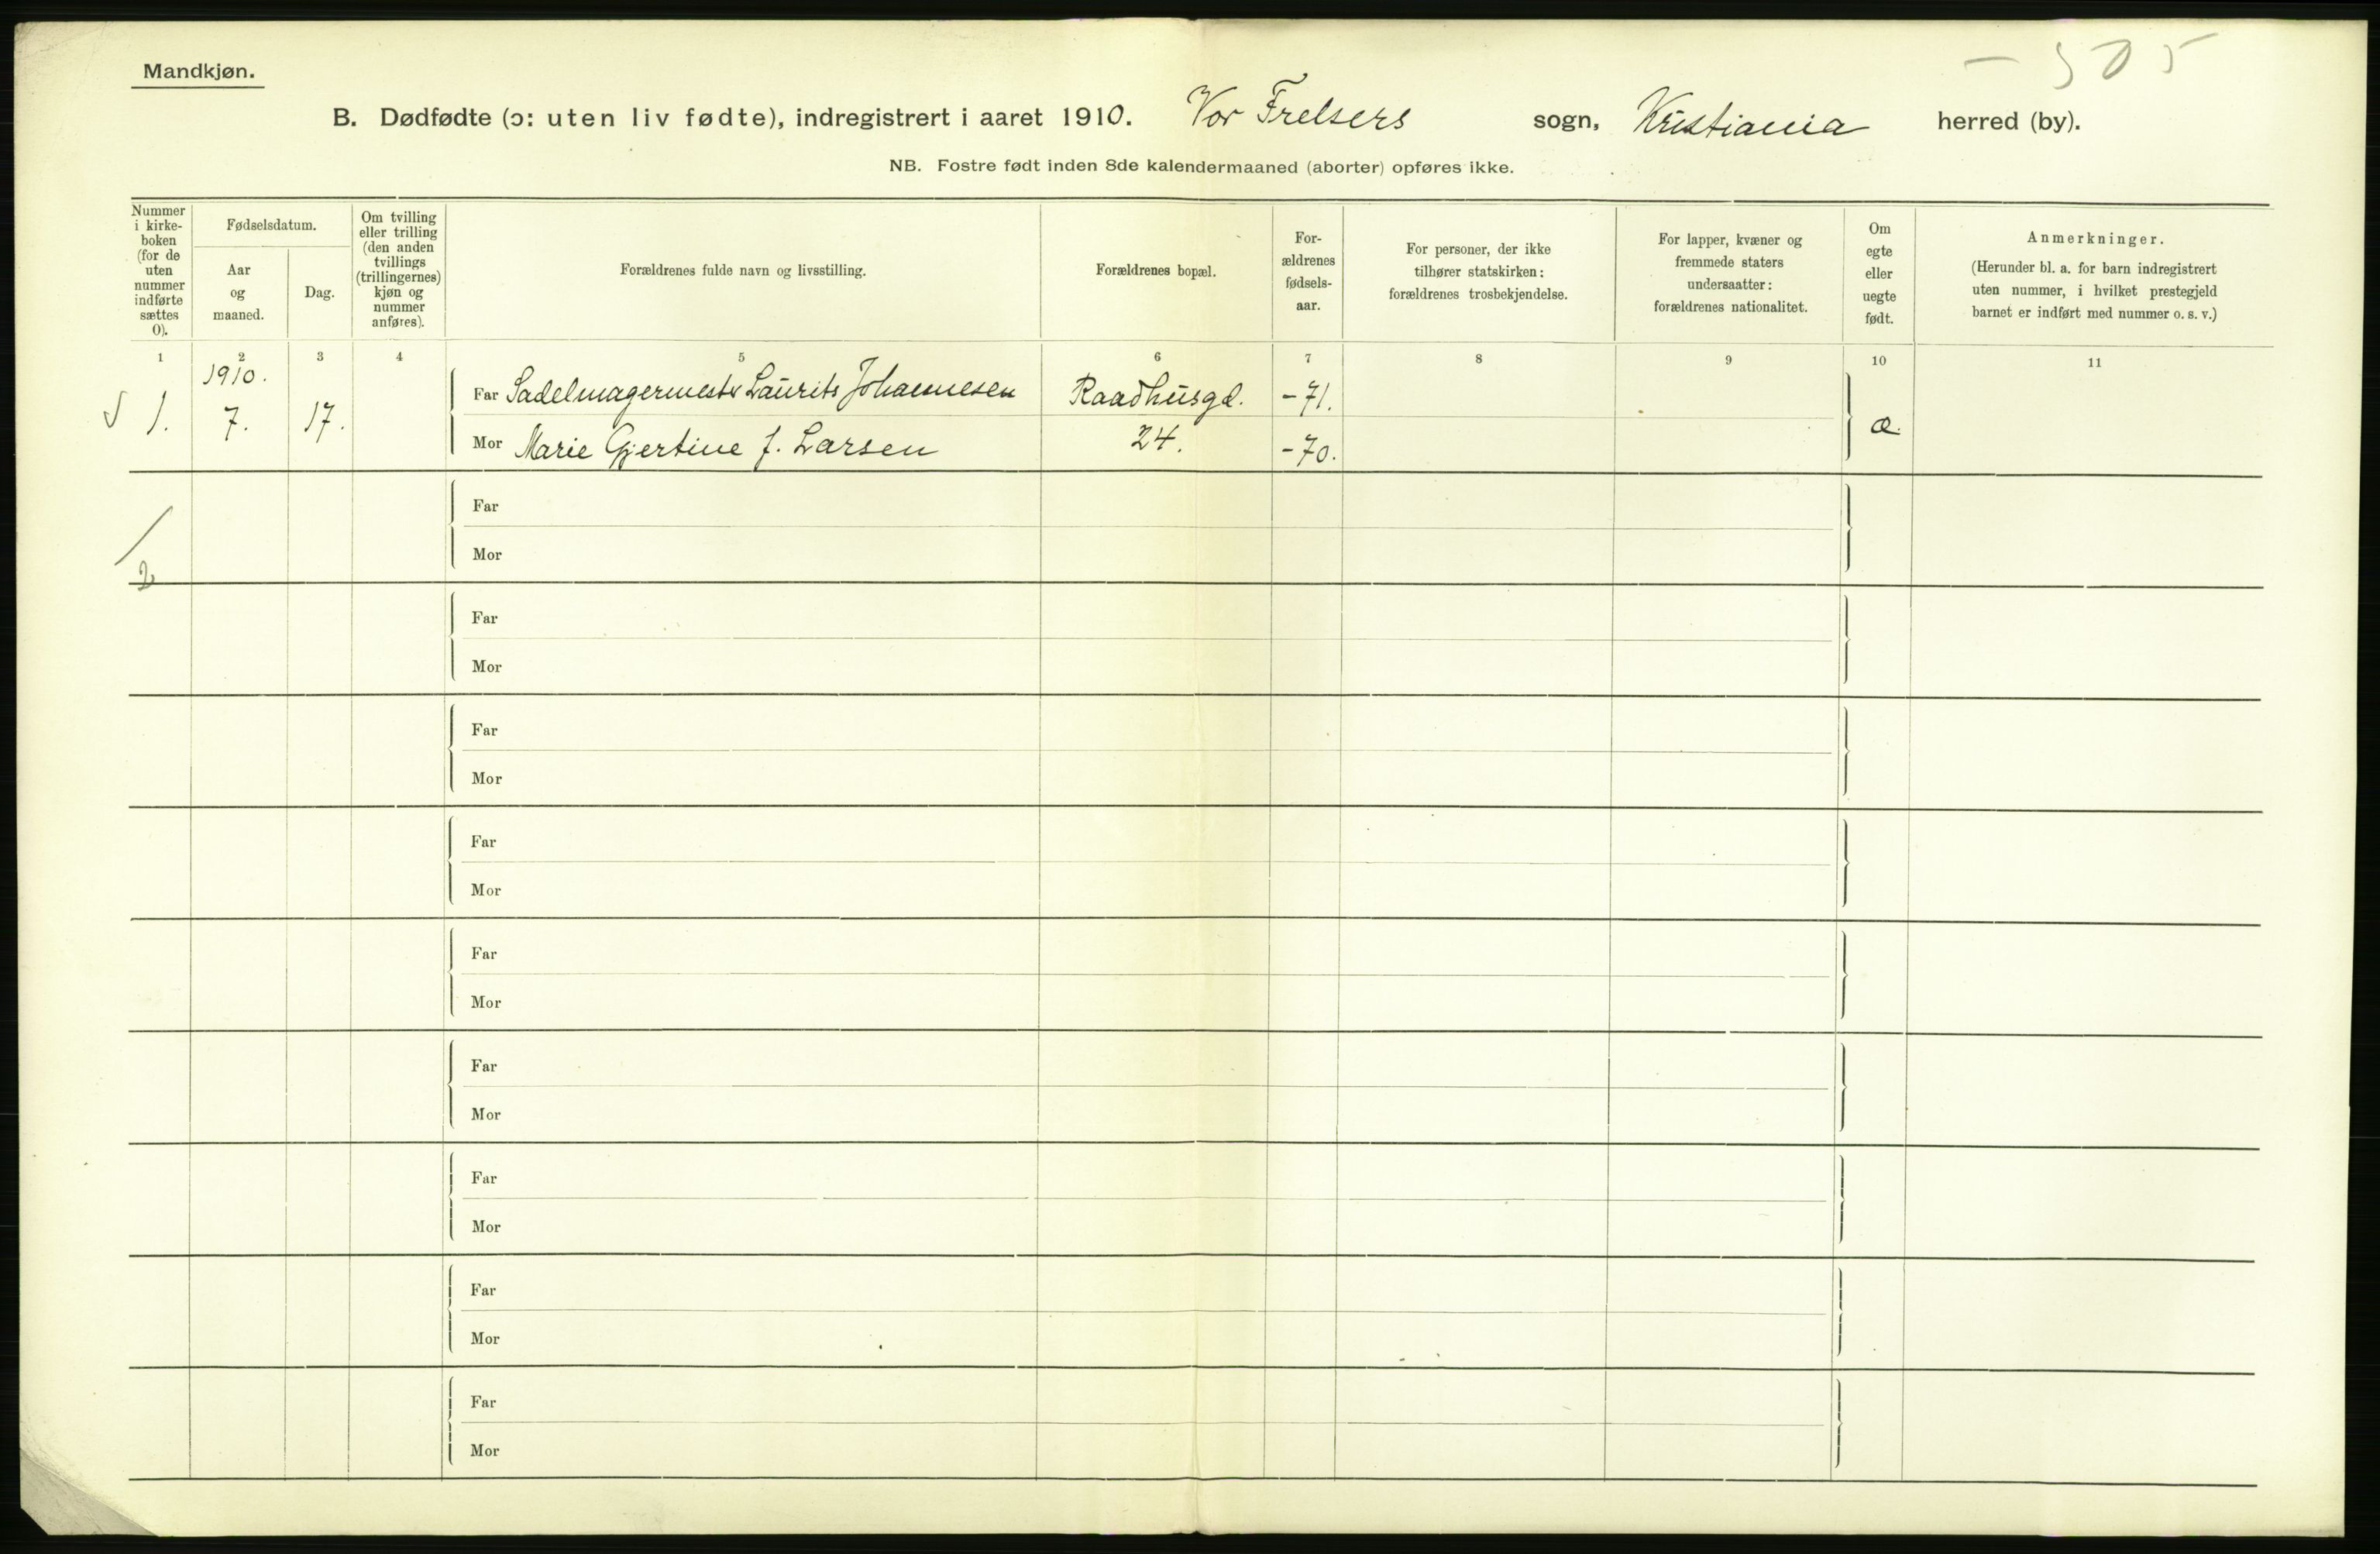 Mandkjøn.
- 505
B. Dødfødte (ɔ: uten liv fødte), indregistrert i aaret 1910. Vor Frelsers sogn, Kristiania herred (by).
NB. Fostre født inden 8de kalendermaaned (aborter) opføres ikke.
Nummer
i kirke-
boken
(for de
uten
nummer
indførte
sættes
0).
Fødselsdatum.
Aar
og
maaned.
Dag.
Om tvilling
eller trilling
(den anden
tvillings
(trillingernes)
kjøn og
nummer
anføres).
Forældrenes fulde navn og livsstilling.
Forældrenes bopæl.
For-
ældrenes
fødsels-
aar.
For personer, der ikke
tilhører statskirken:
forældrenes trosbekjendelse.
For lapper, kvæner og
fremmede staters
undersaatter:
forældrenes nationalitet.
Om
egte
eller
uegte
født.
Anmerkninger.
(Herunder bl. a. for barn indregistrert
uten nummer, i hvilket prestegjeld
barnet er indført med nummer o. s. v.)
1 2 3 4 5 6 7 8 9 10 11
1910.
1. 7. 17.
Far Sadelmagermester Laurits Johannesen Raadhusgd. -71.
Mor Marie Gjertine f. Larsen 24. -70.
æ.
Far
Mor
2
Far
Mor
Far
Mor
Far
Mor
Far
Mor
Far
Mor
Far
Mor
Far
Mor
Far
Mor